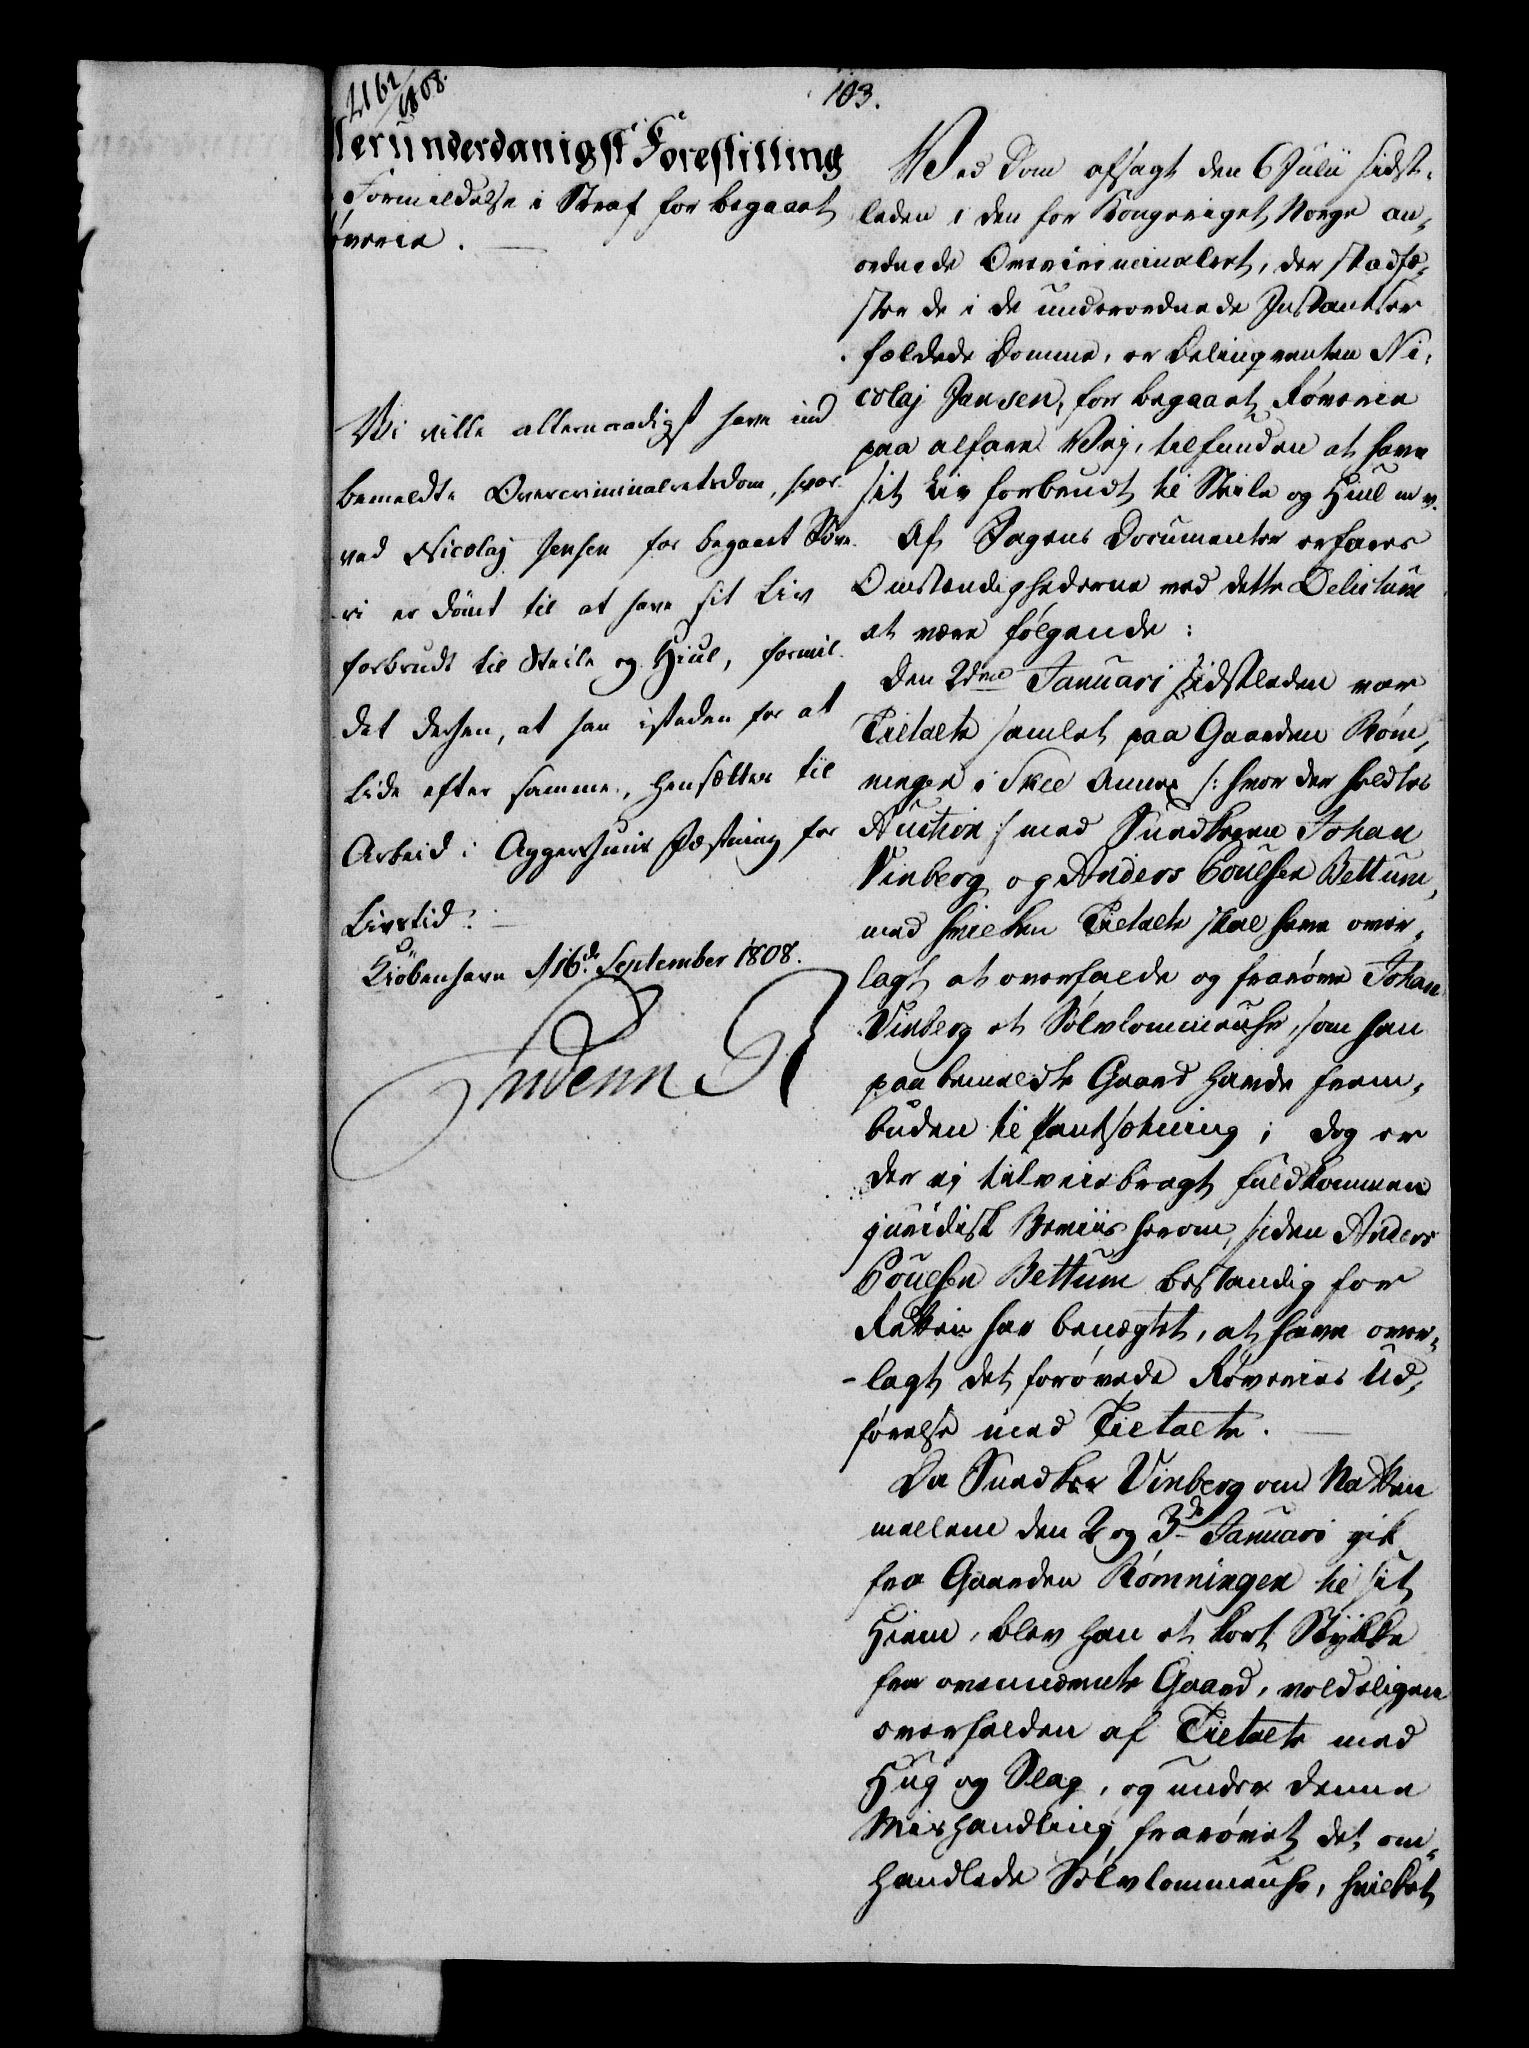 2162/1808.
103.
lerunderdanigst Forestilling
Formildelse i Straf for begaaet
överie.
Vi ville allernaadigst have ind
bemeldte Overcriminalretsdom, hvor
ved Nicolaj Jensen for begaaet Röve
ri er dömt til at have sit Liv
forbrudt til Steile og Hiul, formil
det derhen, at han istæden for at
lide efter samme, hensættes til
Arbeid i Aggershuus Fæstning for
Livstid.
Kiöbenhavn d 16de September 1808.
Frederik R
Ved Dom afsagt den 6 Julii sidst-
leden i den for Kongeriget Norge an-
ordnede Overcriminalret, der stadfæ-
ster de i de underordnede Instantser
fældede Domme, er Delinqventen Ni-
colaj Jansen, for begaaet Röverie
paa alfare Vej, tilfunden at have
sit Liv forbrudt til Steile og Hiul m v.
Af Sagens Documenter erfares
Omstændighederne ved dette Delictum
at være fölgende:
Den 2den Januari sidstleden var
Tiltalte samlet paa Gaarden Röm-
ningen i Skee Annex /: hvor der holdtes
Auction :/ med Snedkeren Johan
Vinberg og Anders Poulsen Bettum,
med hvilken Tiltalte skal have over-
lagt at overfalde og fraröve Johan
Vinberg et Sölvlommeuhr, som han
paa bemeldte Gaard havde frem-
buden til Pantsætning; dog er
der ej tilveiebragt fuldkommen
juridisk Beviis herom, siden Anders
Poulsen Bettum bestandig for
Retten har benægtet, at have over-
lagt det forövede Röveries Ud-
förelse med Tiltalte.
Da Snedker Vinberg om Natten
mellem den 2 og 3de Januari gik
fra Gaarden Römningen til sit
Hiem, blev han et kort Stykke
fra ovennævnte Gaard, voldeligen
overfalden af Tiltalte med
Hug og Slag, og under denne
Mishandling frarövet det om-
handlede Sölvlommeuhr, hvilket